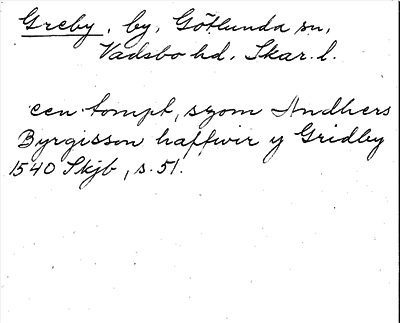 Greby, by, Götlunda sn,
Vadsbo hd. Skar. l.
een tompt, szom Andhers
Byrgisson haffwir y Gridby
1540 Skjb, s. 51.